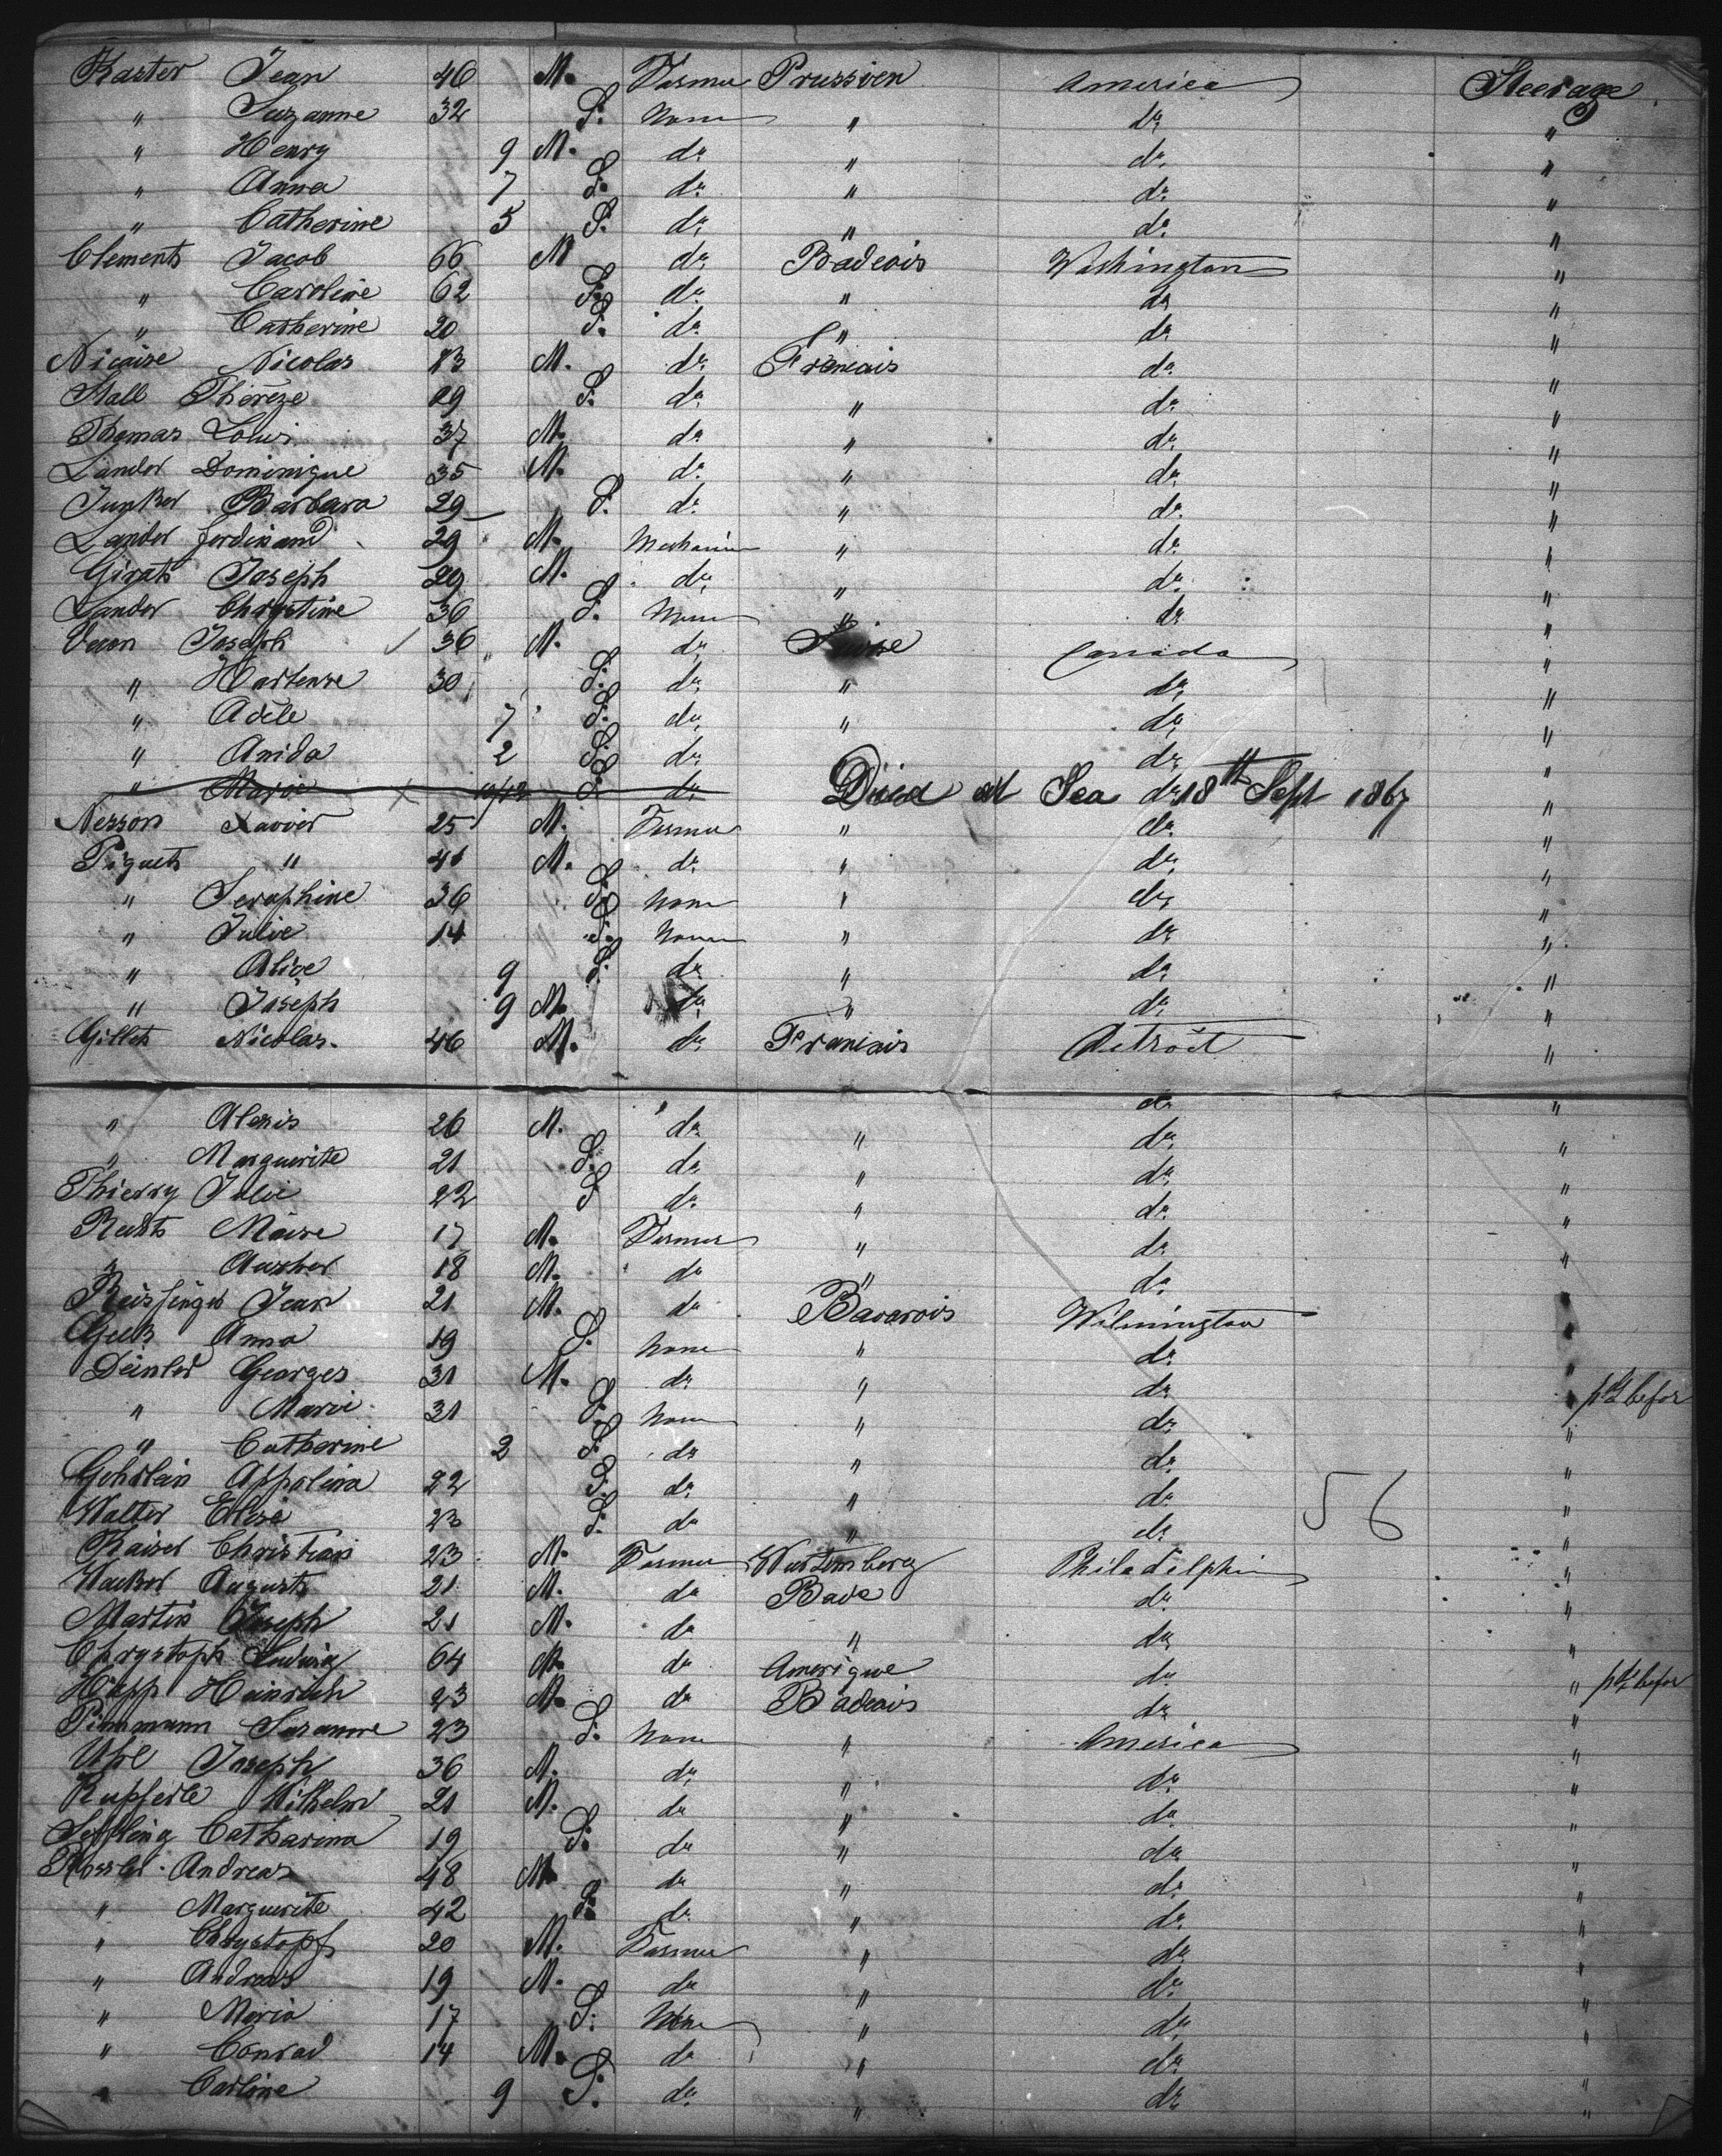 Kaster Jean 46 M. Farmer Prussien America Steerage
" Suzanne 32 F. None " do "
" Henry 9 M. do " do "
" Anna 7 F. do " do "
" Catherine 5 F. do " do "
Clements Jacob 66 M do Badois Washington "
" Caroline 62 F. do " do "
" Catherine 20 F. do " do "
Nicaise Nicolas 13 M. do Francais do "
Stall Thérèze 29 F. do " do "
Thomas Louis 37 M. do " do "
Landor Dominique 35 M. do " do "
Junker Barbara 29 F. do " do "
Landor ferdinand 29 M. Mechanic " do "
Girats Joseph 29 M. do " do "
Landor Chrystine 36 F. None " do "
Joseph 36 M. do Suisse Canada "
" Hortense 30 F. do " do "
" Adèle 7 F. do " do "
" Anida 2 F. do " do "
" Marie 10/12 F. do Died at Sea do 18th Sept 1867 "
Nesson Xavier 25 M. Farmer " do "
Piquets " 41 M. do " do "
" Seraphine 36 F. None " do "
" Julie 14 F. None " do "
" Alice 9 F. do " do "
" Joseph 9 M. do " do "
Gillets Nicolas. 46 M. do Francais Detroit "
" Alexis 26 M. do " do "
" Marguerite 21 F. do " do "
Thierry Julie 22 F do " do "
Moise 17 M. Farmer " do "
" 18 M. do " do "
Reisfinger Jean 21 M. do Bavarois Wilmington "
Anna 19 F. None " do "
Deinler Georges 31 M. do " do " pd befor
" Marie 31 F. None " do "
" Catherine 2 F. do " do "
Gehrlein Appolina 22 F. do " do "
Walter Elisa 23 F. do " do 56 "
Kaiser Christian 23 M. Farmer Wurtemberg Philadelphia "
Wacker Auguste 21 M. do Bade do "
Martin Joseph 21 M. do " do "
Chrystoph Ludwig 64 M. do Amerique do " pd befor
Happ Heinrich 23 M. do Badois do "
Timmann Suzanne 23 F. None " America "
Uhl Joseph 36 M. do " do "
Kupferle Wilhelm 21 M. do " do "
Catharina 19 F. do " do "
Rossler Andreas 48 M. do " do "
" Marguerite 42 F. do " do "
" Chrystopf 20 M. Farmer " do "
" Andreas 19 M. do " do "
" Maria 17 F. None " do "
" Conrad 14 M. do " do "
" Carline 9 F. do " do "